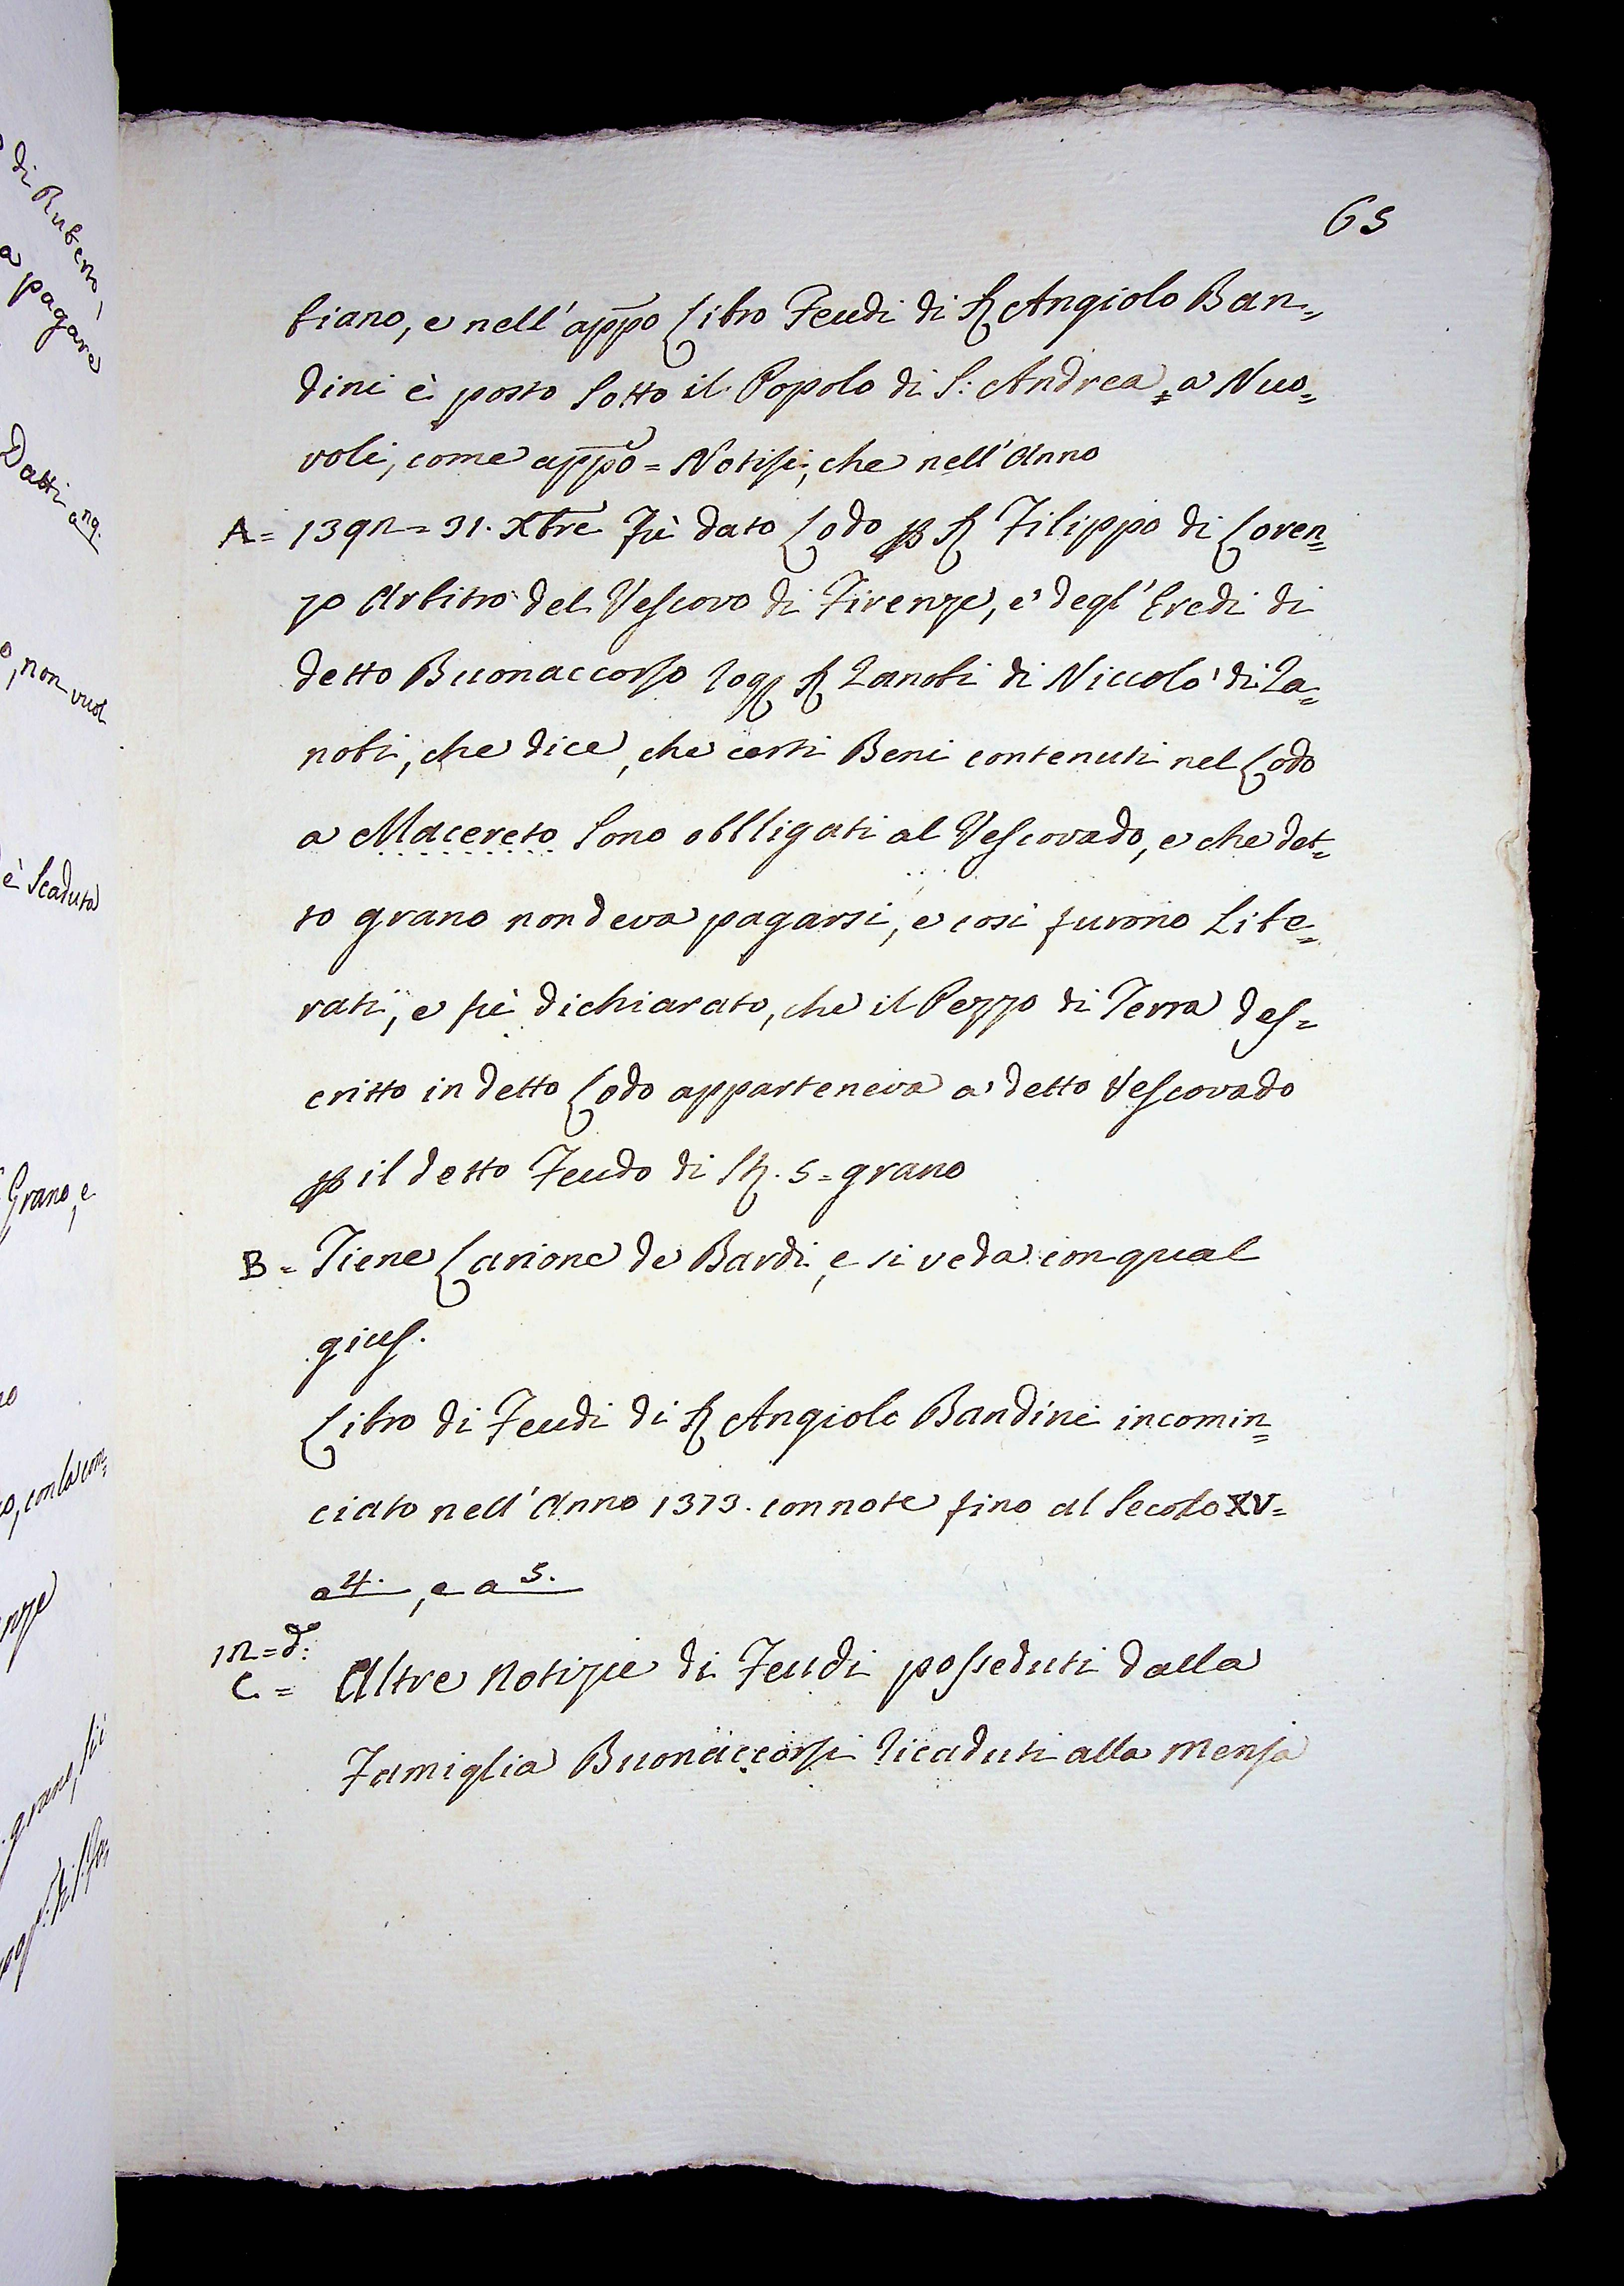 di Ruberto,
a pagare
Datti a ng.
o, non vuol
è Scaduta
Grano, e
o, con la con=
nze
grano, fù
65
biano, e nell' appo Libro Feudi di Sr Angiolo Ban=
dini è posto Sotto il Popolo di S: Andrea = a Nuo=
voli, come appo = Notisi, che nell' Anno
A = 1392 = 31. Xbre Fù dato Lodo p Sr Filippo di Loren=
zo Arbitro del Vescovo di Firenze, e' degl' Eredi di
detto Buonaccorso rogo Sr Zanobi di Niccolò di Za=
nobi, che dice, che certi Beni contenuti nel Lodo
a Macereto Sono obbligati al Vescovado, e che det=
to grano non deva pagarsi, e così furono Libe=
rati, e fù dichiarato, che il Pezzo di Terra des=
critto in detto Lodo apparteneva a' detto Vescovado
p il detto Feudo di St. 5 = grano
B = Tiene Larione de Bardi, e si veda con qual
gius.
Libro di Feudi di Sr Angiolo Bandini incomin=
ciato nell' Anno 1373. con note fino al Secolo XV =
a 4. , e a 5.
12 = d:
C = Altre Notizie di Feudi posseduti dalla
Famiglia Buonaccorsi ricaduti alla Mensa